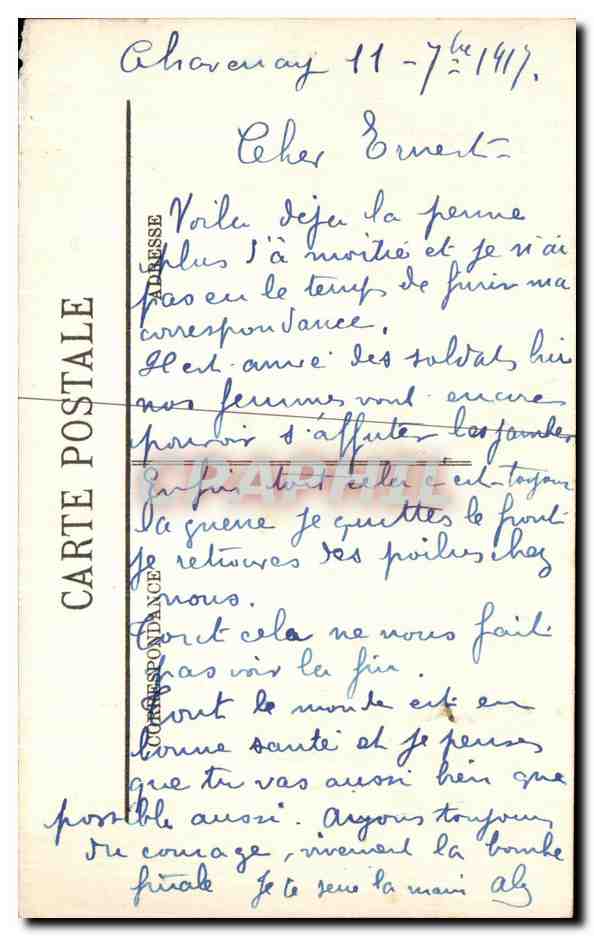 Chavenay 11 - 7bre 1917.
Cher Ernest -
Voila deja la perme
plus d'à moitié et je n'ai
pas eu le temps de finir ma
correspondance.
Il est arrivé des soldats hier
nos femmes vont encore
pouvoir s'affuter les jambes
Enfin tout cela c'est toujours
la guerre je quittes le front
je retrouves des poilus chez
nous.
Tout cela ne nous fait
pas voir la fin.
Tout le monde est en
bonne santé et je penses
que tu vas aussi bien que
possible aussi. Ayons toujours
du courage, vivement la bombe
finale Je te serre la main
CARTE POSTALE
ADRESSE
CORRESPONDANCE
DELCAMPHIL